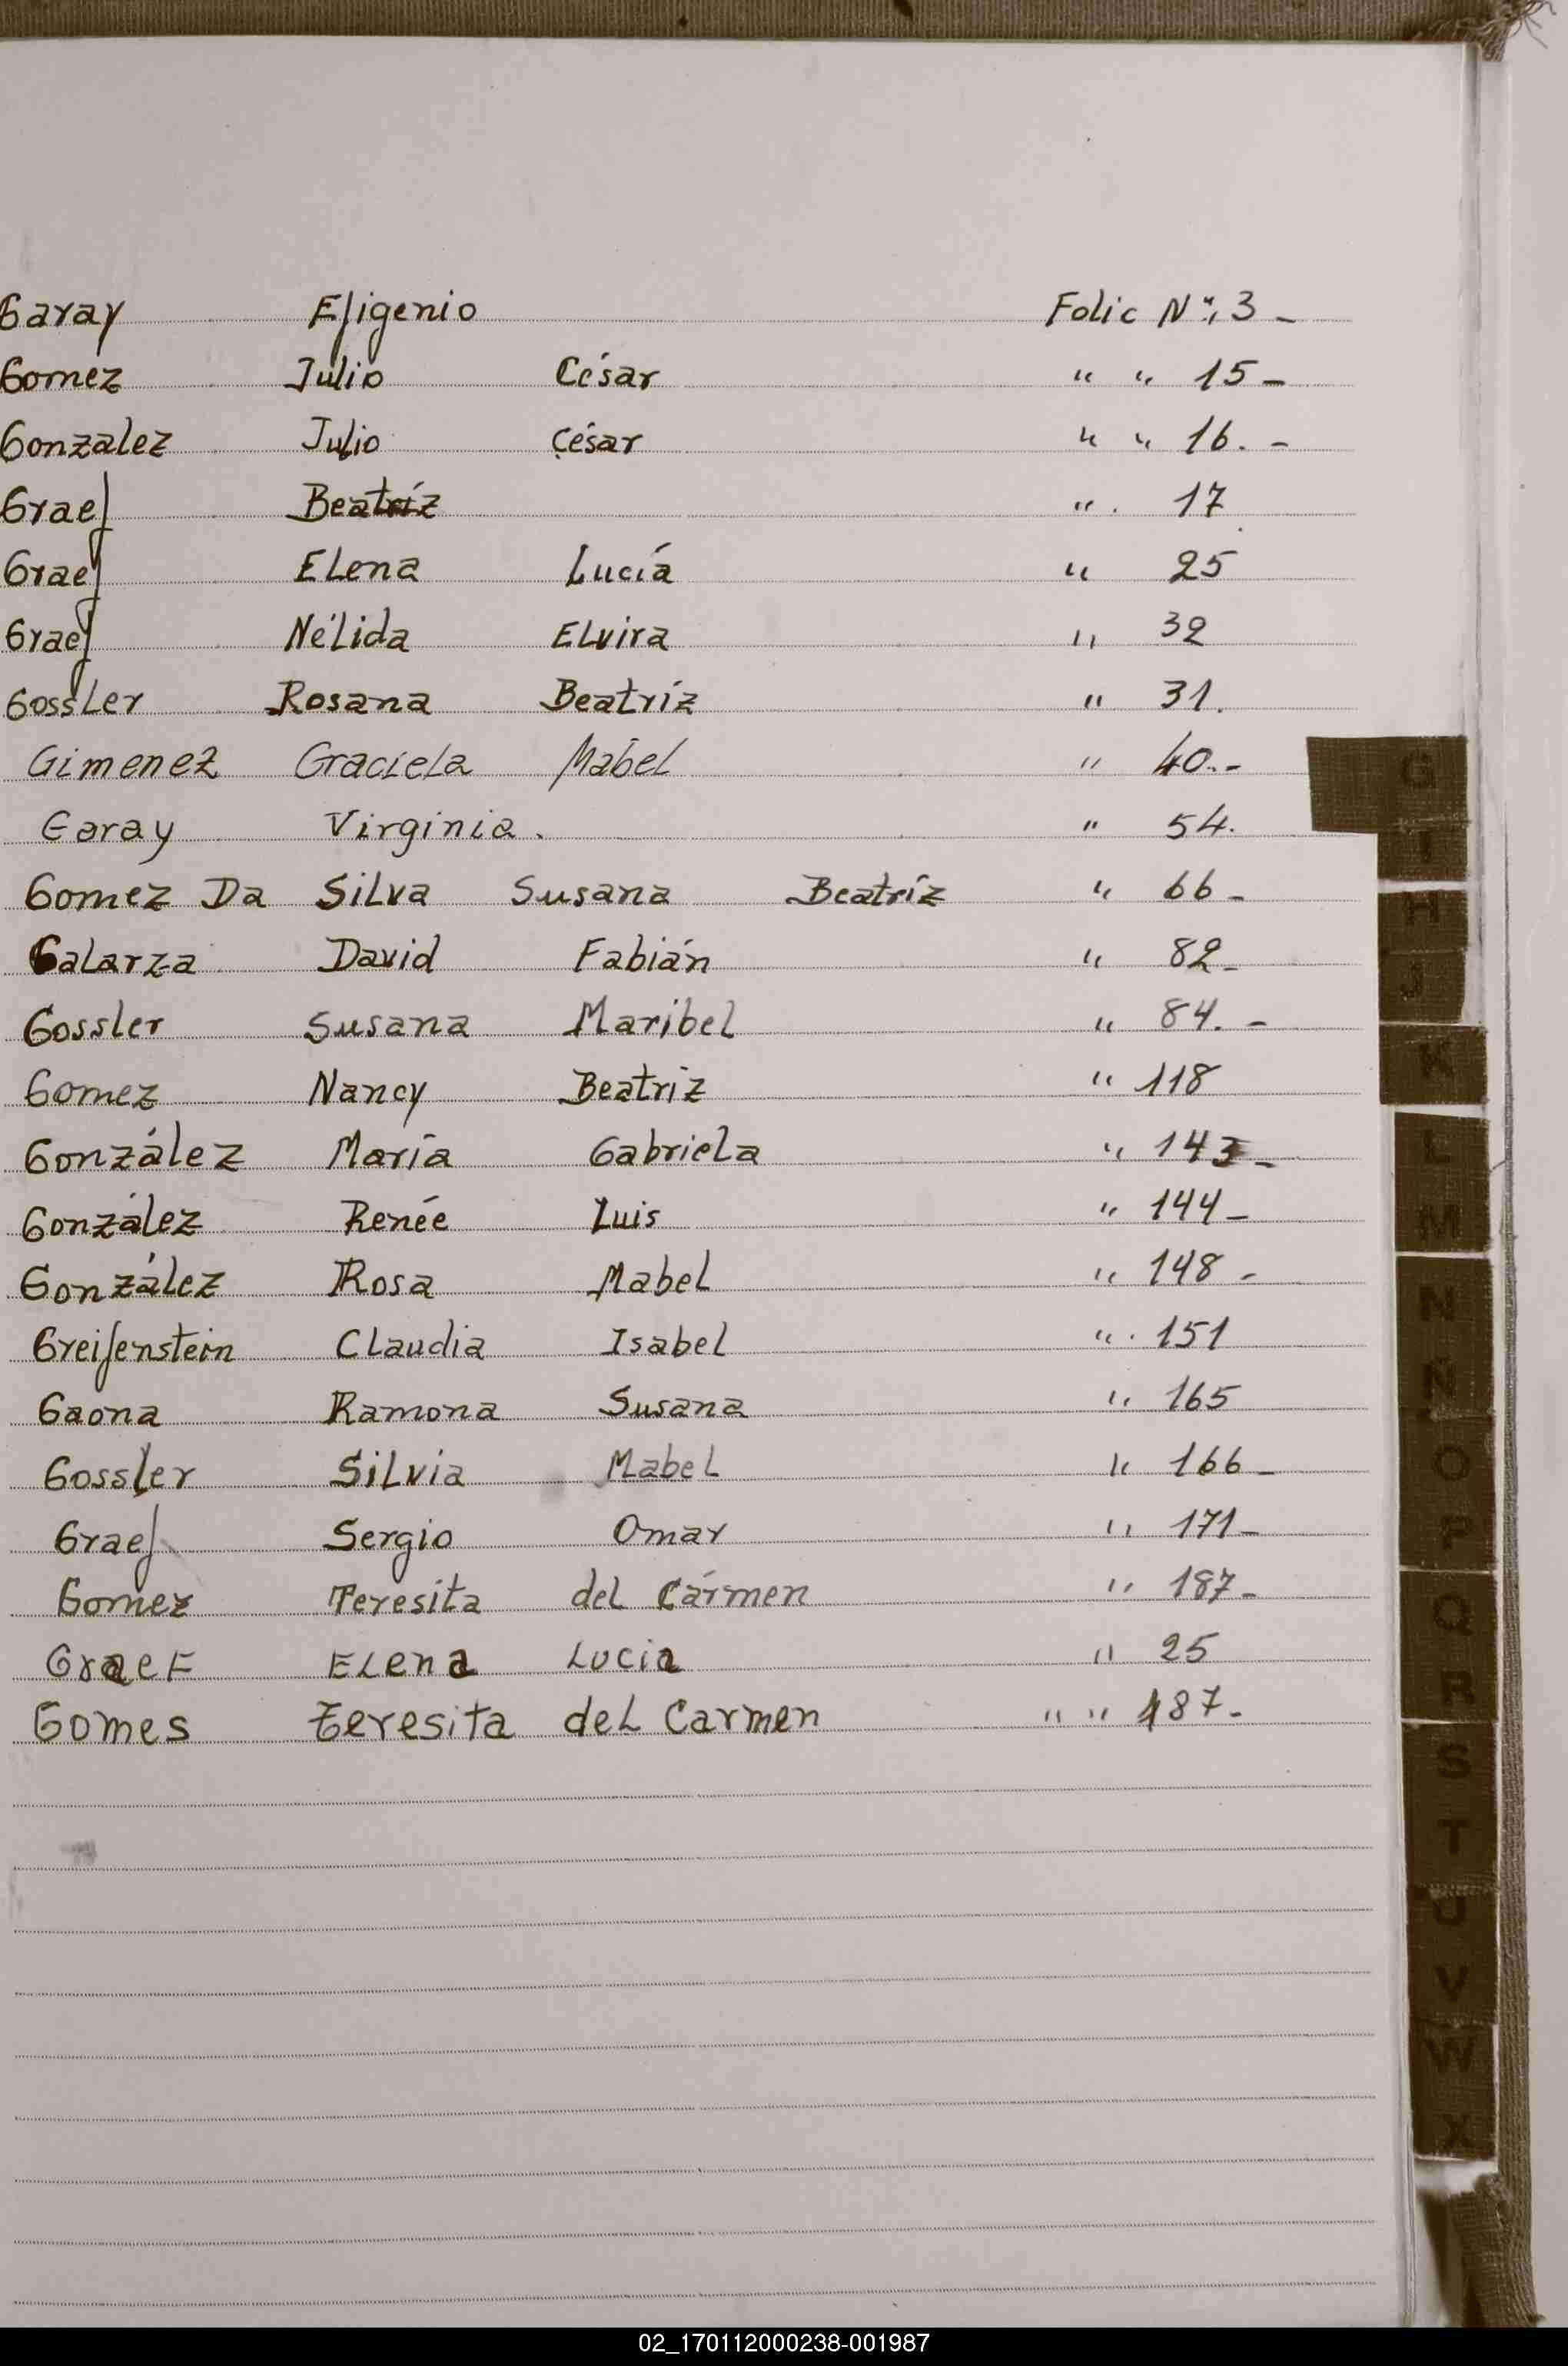 Garay Efigenio Folio N°: 3 -
Gomez Julio César " " 15 -
Gonzalez Julio César " " 16. -
Graef Beatríz " . 17
Graef Elena Lucía " 25
Graef Nélida Elvira " 32
Gossler Rosana Beatríz " 31.
Gimenez Graciela Mabel " 40.-
Garay Virginia. " 54.
Gomez Da Silva Susana Beatríz " 66 -
Galarza David Fabián " 82 -
Gossler Susana Maribel " 84. -
Gomez Nancy Beatriz " 118
González María Gabriela " 143 -
González Renée Luis " 144 -
González Rosa Mabel " 148 -
Greifenstein Claudia Isabel " . 151
Gaona Ramona Susana " 165
Gossler Silvia Mabel " 166 -
Graef Sergio Omar " 171 -
Gomez Teresita del Cármen " 187 -
Graef Elena Lucia " 25
Gomes Teresita del Carmen " " 187 -
G
I
H
J
K
L
M
N
Ñ
O
P
Q
R
S
T
U
V
W
X
02_170112000238-001987